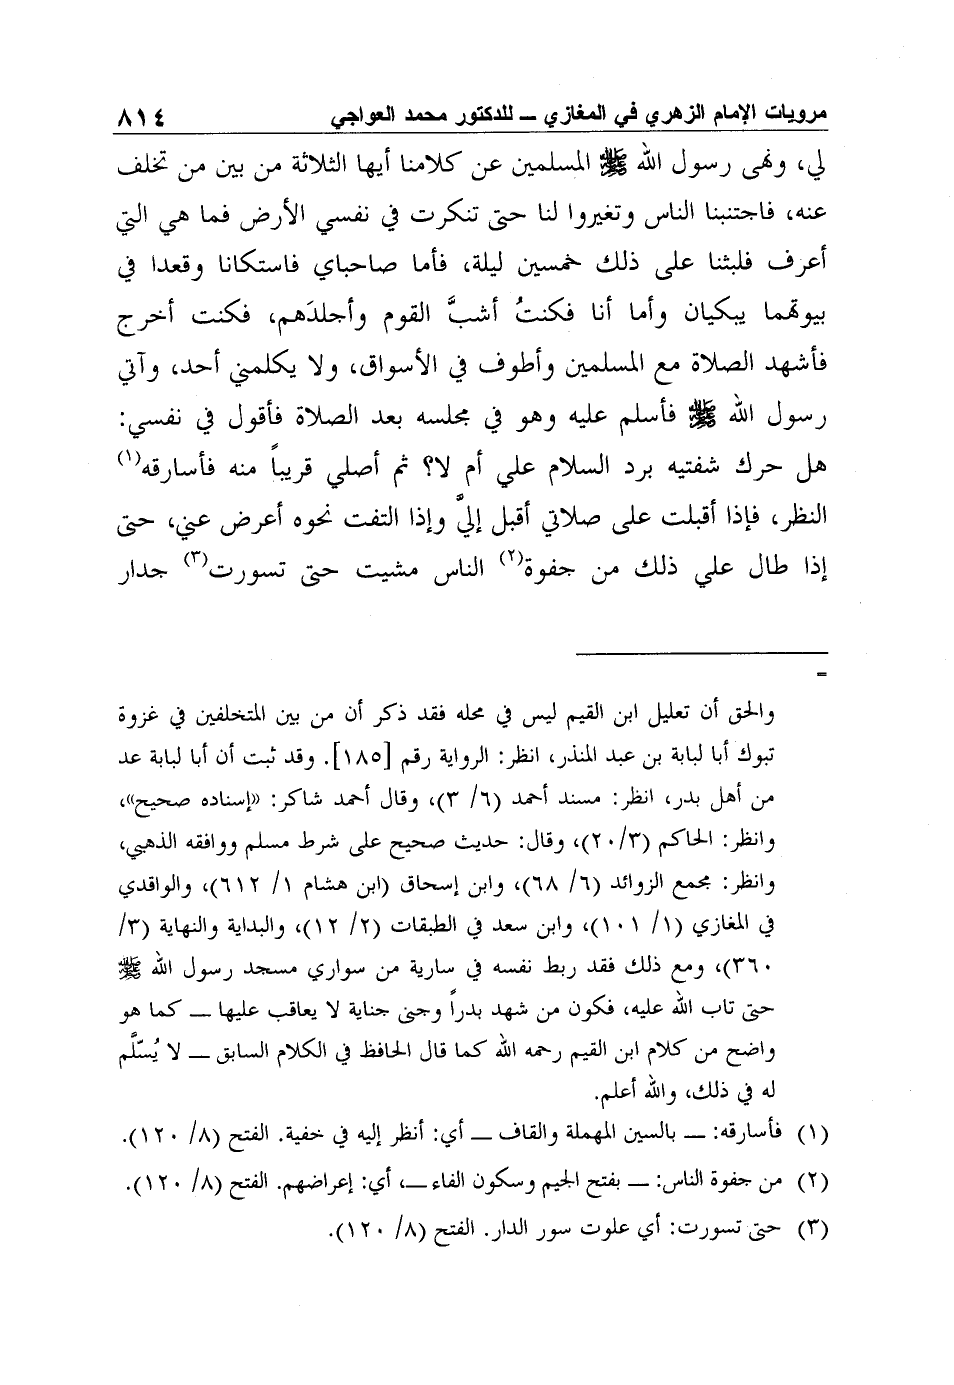 مرويات الإمام الزهري في المغازي ــ للدكتور محمد العواجي ٨١٤
لي، ونهى رسول الله ﷺ المسلمين عن كلامنا أيها الثلاثة من بين من تخلف
عنه، فاجتنبنا الناس وتغيروا لنا حتى تنكرت في نفسي الأرض فما هي التي
أعرف فلبثنا على ذلك خمسين ليلة، فأما صاحباي فاستكانا وقعدا في
بيوتهما يبكيان وأما أنا فكنتُ أشبَّ القوم وأجلدَهم، فكنت أخرج
فأشهد الصلاة مع المسلمين وأطوف في الأسواق، ولا يكلمني أحد، وآتي
رسول الله ﷺ فأسلم عليه وهو في مجلسه بعد الصلاة فأقول في نفسي:
هل حرك شفتيه برد السلام علي أم لا؟ ثم أصلي قريباً منه فأسارقه(١)
النظر، فإذا أقبلت على صلاتي أقبل إليَّ وإذا التفت نحوه أعرض عني، حتى
إذا طال علي ذلك من جفوة(٢) الناس مشيت حتى تسورت(٣) جدار
=
والحق أن تعليل ابن القيم ليس في محله فقد ذكر أن من بين المتخلفين في غزوة
تبوك أبا لبابة بن عبد المنذر، انظر: الرواية رقم [١٨٥]. وقد ثبت أن أبا لبابة عد
من أهل بدر، انظر: مسند أحمد (٦/ ٣)، وقال أحمد شاكر: «إسناده صحيح»،
وانظر: الحاكم (٢٠/٣)، وقال: حديث صحيح على شرط مسلم ووافقه الذهبي،
وانظر: مجمع الزوائد (٦/ ٦٨)، وابن إسحاق (ابن هشام ١/ ٦١٢)، والواقدي
في المغازي (١/ ١٠١)، وابن سعد في الطبقات (٢/ ١٢)، والبداية والنهاية (٣/
٣٦٠)، ومع ذلك فقد ربط نفسه في سارية من سواري مسجد رسول الله ﷺ
حتى تاب الله عليه، فكون من شهد بدراً وجنى جناية لا يعاقب عليها ــ كما هو
واضح من كلام ابن القيم رحمه الله كما قال الحافظ في الكلام السابق ــ لا يُسَلَّم
له في ذلك، والله أعلم.
(١) فأسارقه: ــ بالسين المهملة والقاف ــ أي: أنظر إليه في خفية. الفتح (٨/ ١٢٠).
(٢) من جفوة الناس: ــ بفتح الجيم وسكون الفاء ــ، أي: إعراضهم. الفتح (٨/ ١٢٠).
(٣) حتى تسورت: أي علوت سور الدار. الفتح (٨/ ١٢٠).